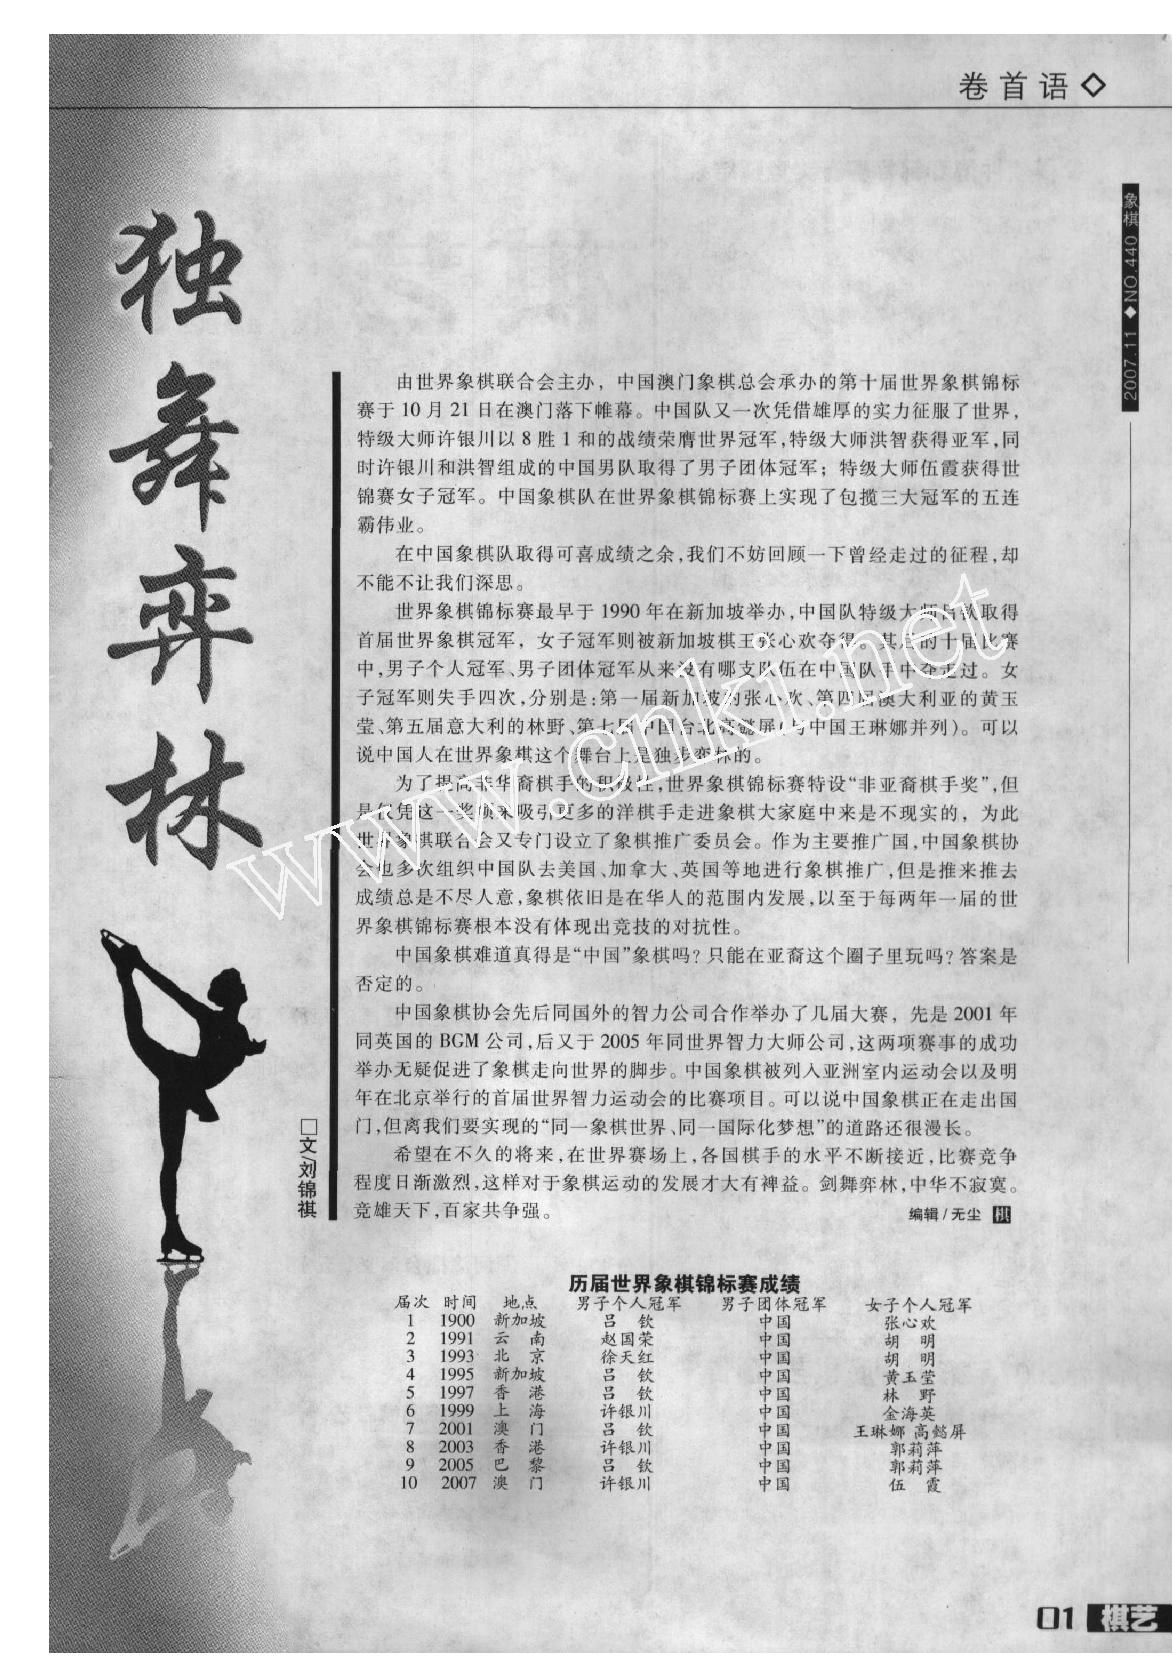 卷首语◇
象棋 2007.11◆NO.440
独舞弈林
□文/刘锦祺
由世界象棋联合会主办，中国澳门象棋总会承办的第十届世界象棋锦标
赛于10月21日在澳门落下帷幕。中国队又一次凭借雄厚的实力征服了世界，
特级大师许银川以8胜1和的战绩荣膺世界冠军，特级大师洪智获得亚军，同
时许银川和洪智组成的中国男队取得了男子团体冠军；特级大师伍霞获得世
锦赛女子冠军。中国象棋队在世界象棋锦标赛上实现了包揽三大冠军的五连
霸伟业。
在中国象棋队取得可喜成绩之余，我们不妨回顾一下曾经走过的征程，却
不能不让我们深思。
世界象棋锦标赛最早于1990年在新加坡举办，中国队特级大师吕钦取得
首届世界象棋冠军，女子冠军则被新加坡棋王张心欢夺得。其后的十届比赛
中，男子个人冠军、男子团体冠军从来没有哪支队伍在中国队手中夺走过。女
子冠军则失手四次，分别是：第一届新加坡的张心欢、第四届澳大利亚的黄玉
莹、第五届意大利的林野、第七届中国台北高懿屏（与中国王琳娜并列）。可以
说中国人在世界象棋这个舞台上是独步弈林的。
为了提高非华裔棋手的积极性，世界象棋锦标赛特设“非亚裔棋手奖”，但
是仅凭这一奖项来吸引更多的洋棋手走进象棋大家庭中来是不现实的，为此
世界象棋联合会又专门设立了象棋推广委员会。作为主要推广国，中国象棋协
会也多次组织中国队去美国、加拿大、英国等地进行象棋推广，但是推来推去
成绩总是不尽人意，象棋依旧是在华人的范围内发展，以至于每两年一届的世
界象棋锦标赛根本没有体现出竞技的对抗性。
中国象棋难道真得是“中国”象棋吗？只能在亚裔这个圈子里玩吗？答案是
否定的。
中国象棋协会先后同国外的智力公司合作举办了几届大赛，先是2001年
同英国的BGM公司，后又于2005年同世界智力大师公司，这两项赛事的成功
举办无疑促进了象棋走向世界的脚步。中国象棋被列入亚洲室内运动会以及明
年在北京举行的首届世界智力运动会的比赛项目。可以说中国象棋正在走出国
门，但离我们要实现的“同一象棋世界、同一国际化梦想”的道路还很漫长。
希望在不久的将来，在世界赛场上，各国棋手的水平不断接近，比赛竞争
程度日渐激烈，这样对于象棋运动的发展才大有裨益。剑舞弈林，中华不寂寞。
竞雄天下，百家共争强。 编辑/无尘 棋
历届世界象棋锦标赛成绩
届次 时间 地点 男子个人冠军 男子团体冠军 女子个人冠军
1 1900 新加坡 吕钦 中国 张心欢
2 1991 云南 赵国荣 中国 胡明
3 1993 北京 徐天红 中国 胡明
4 1995 新加坡 吕钦 中国 黄玉莹
5 1997 香港 吕钦 中国 林野
6 1999 上海 许银川 中国 金海英
7 2001 澳门 吕钦 中国 王琳娜 高懿屏
8 2003 香港 许银川 中国 郭莉萍
9 2005 巴黎 吕钦 中国 郭莉萍
10 2007 澳门 许银川 中国 伍霞
01 棋艺
www.cnki.net